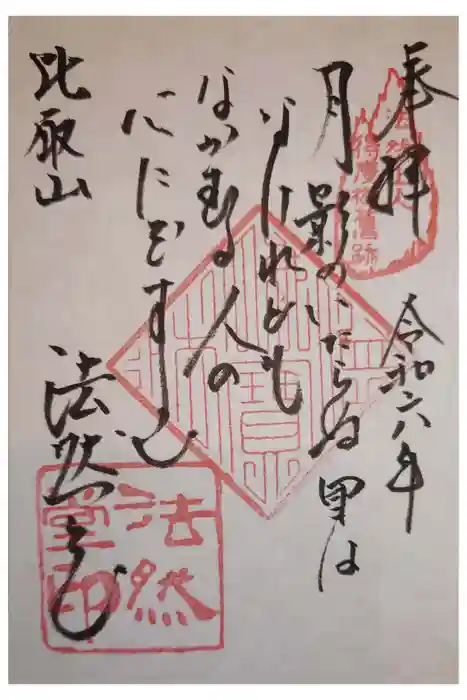 奉拝
令和六年
月影のいたらぬ里は
なけれども
ながむる人の
心にぞすむ
比叡山
法然堂
法然上人
得度旧蹟
法然
堂印